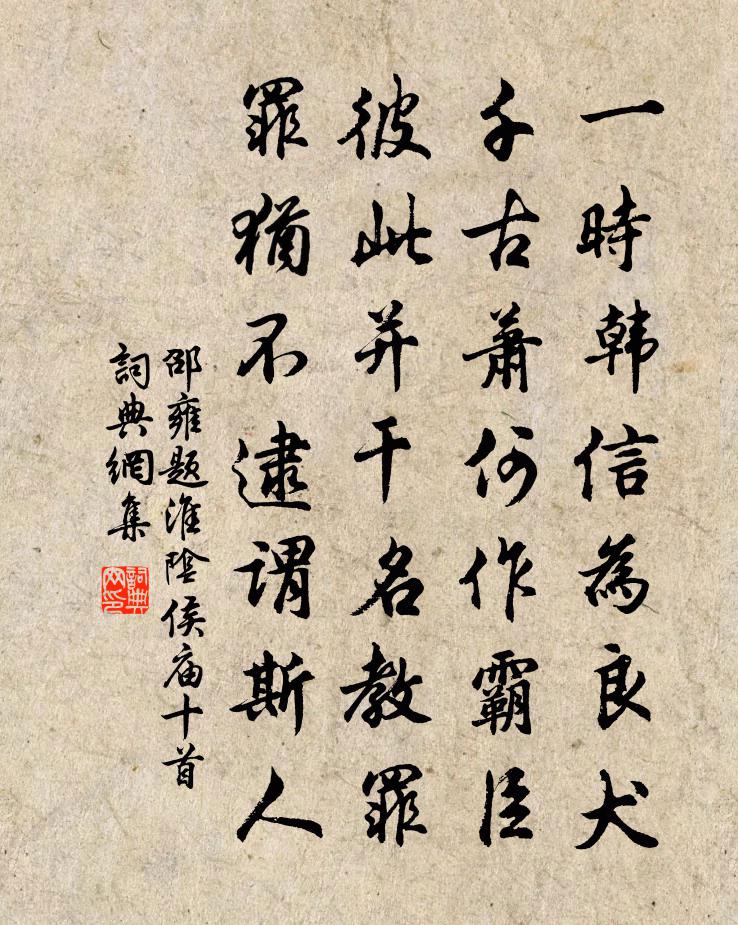 一時韩信為良犬
千古萧何作霸臣
彼此并干名教罪
罪猶不逮謂斯人
邵雍题淮陰侯庙十首
詞典網集
詞典网印